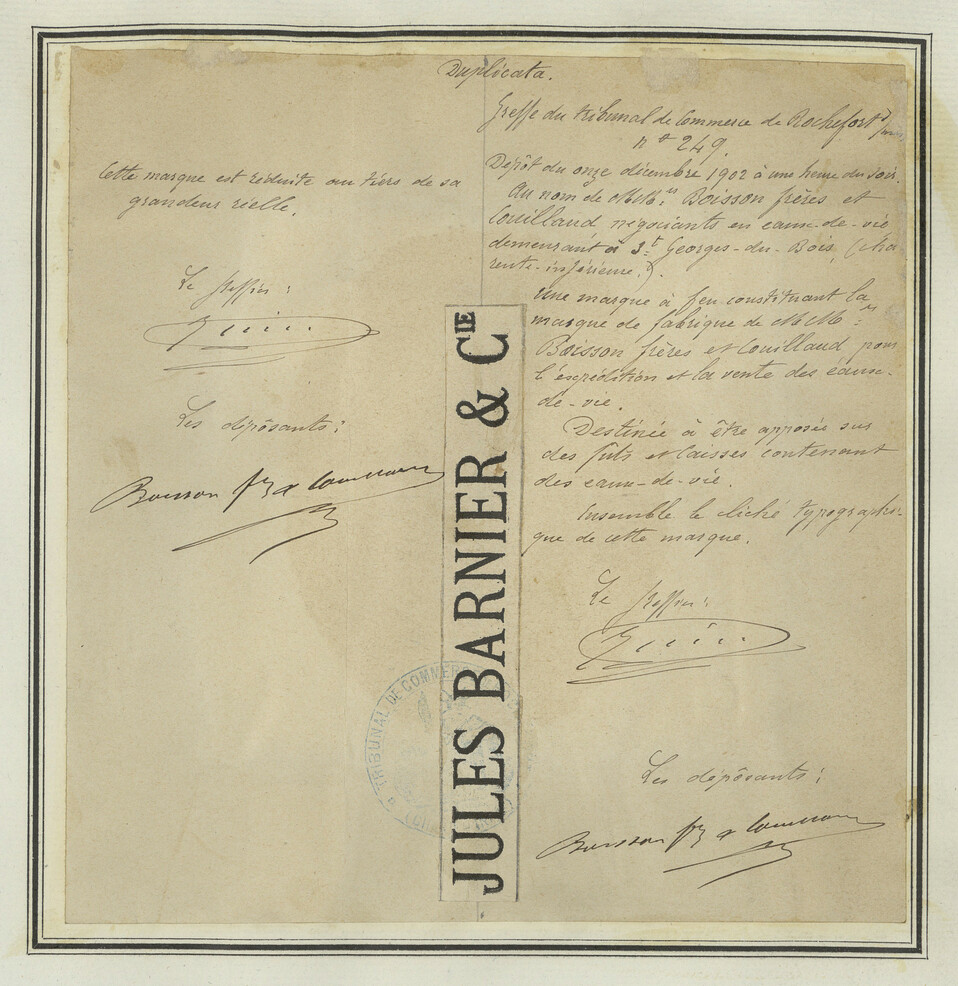 Duplicata.
Cette marque est réduite au tiers de sa
grandeur réelle.
Le Greffier :
Les dépôsants :
Boisson frs & Couillaud
Greffe du tribunal de Commerce de Rochefort s/
n° 249.
Dépôt du onze décembre 1902 à une heure du soir.
Au nom de MM.rs Boisson frères et
Couillaud négociants en eaux-de-vie
demeurant à St Georges-du-Bois, (Cha
rente-inférieure.).
Une marque à feu constituant la
marque de fabrique de MM.rs
Boisson frères et Couillaud pour
l'expédition et la vente des eaux-
de-vie.
Destinée à être apposée sur
des fûts et caisses contenant
des eaux-de-vie.
Ensemble le cliché typographi-
que de cette marque.
Le Greffier :
Les dépôsants :
Boisson frs & Couillaud
JULES BARNIER & CIE
TRIBUNAL DE COMMERCE